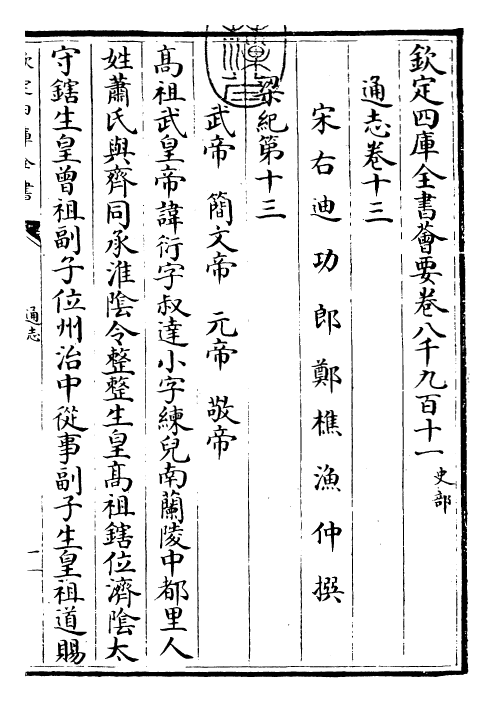 欽定四庫全書薈要卷八千九百十一 史部
通志卷十三
宋右迪功郎鄭樵漁仲撰
梁紀第十三
武帝 簡文帝 元帝 敬帝
高祖武皇帝諱衍字叔達小字練兒南蘭陵中都里人
姓蕭氏與齊同承淮陰令整整生皇高祖鎋位濟陰太
守鎋生皇曾祖副子位州治中從事副子生皇祖道賜
欽定四庫全書
通志
一